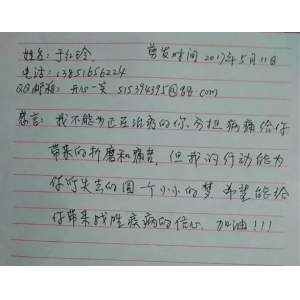 姓名：于红玲 剪发时间 2017年5月11日
电话：13851656224
QQ邮箱：开心一笑 515394395@qq.com
感言：我不能为正在治病的你，分担病痛给你
带来的折磨和痛苦，但我的行动能为
你所失去的圆一个小小的梦，希望能给
你带来战胜疾病的信心，加油！！！